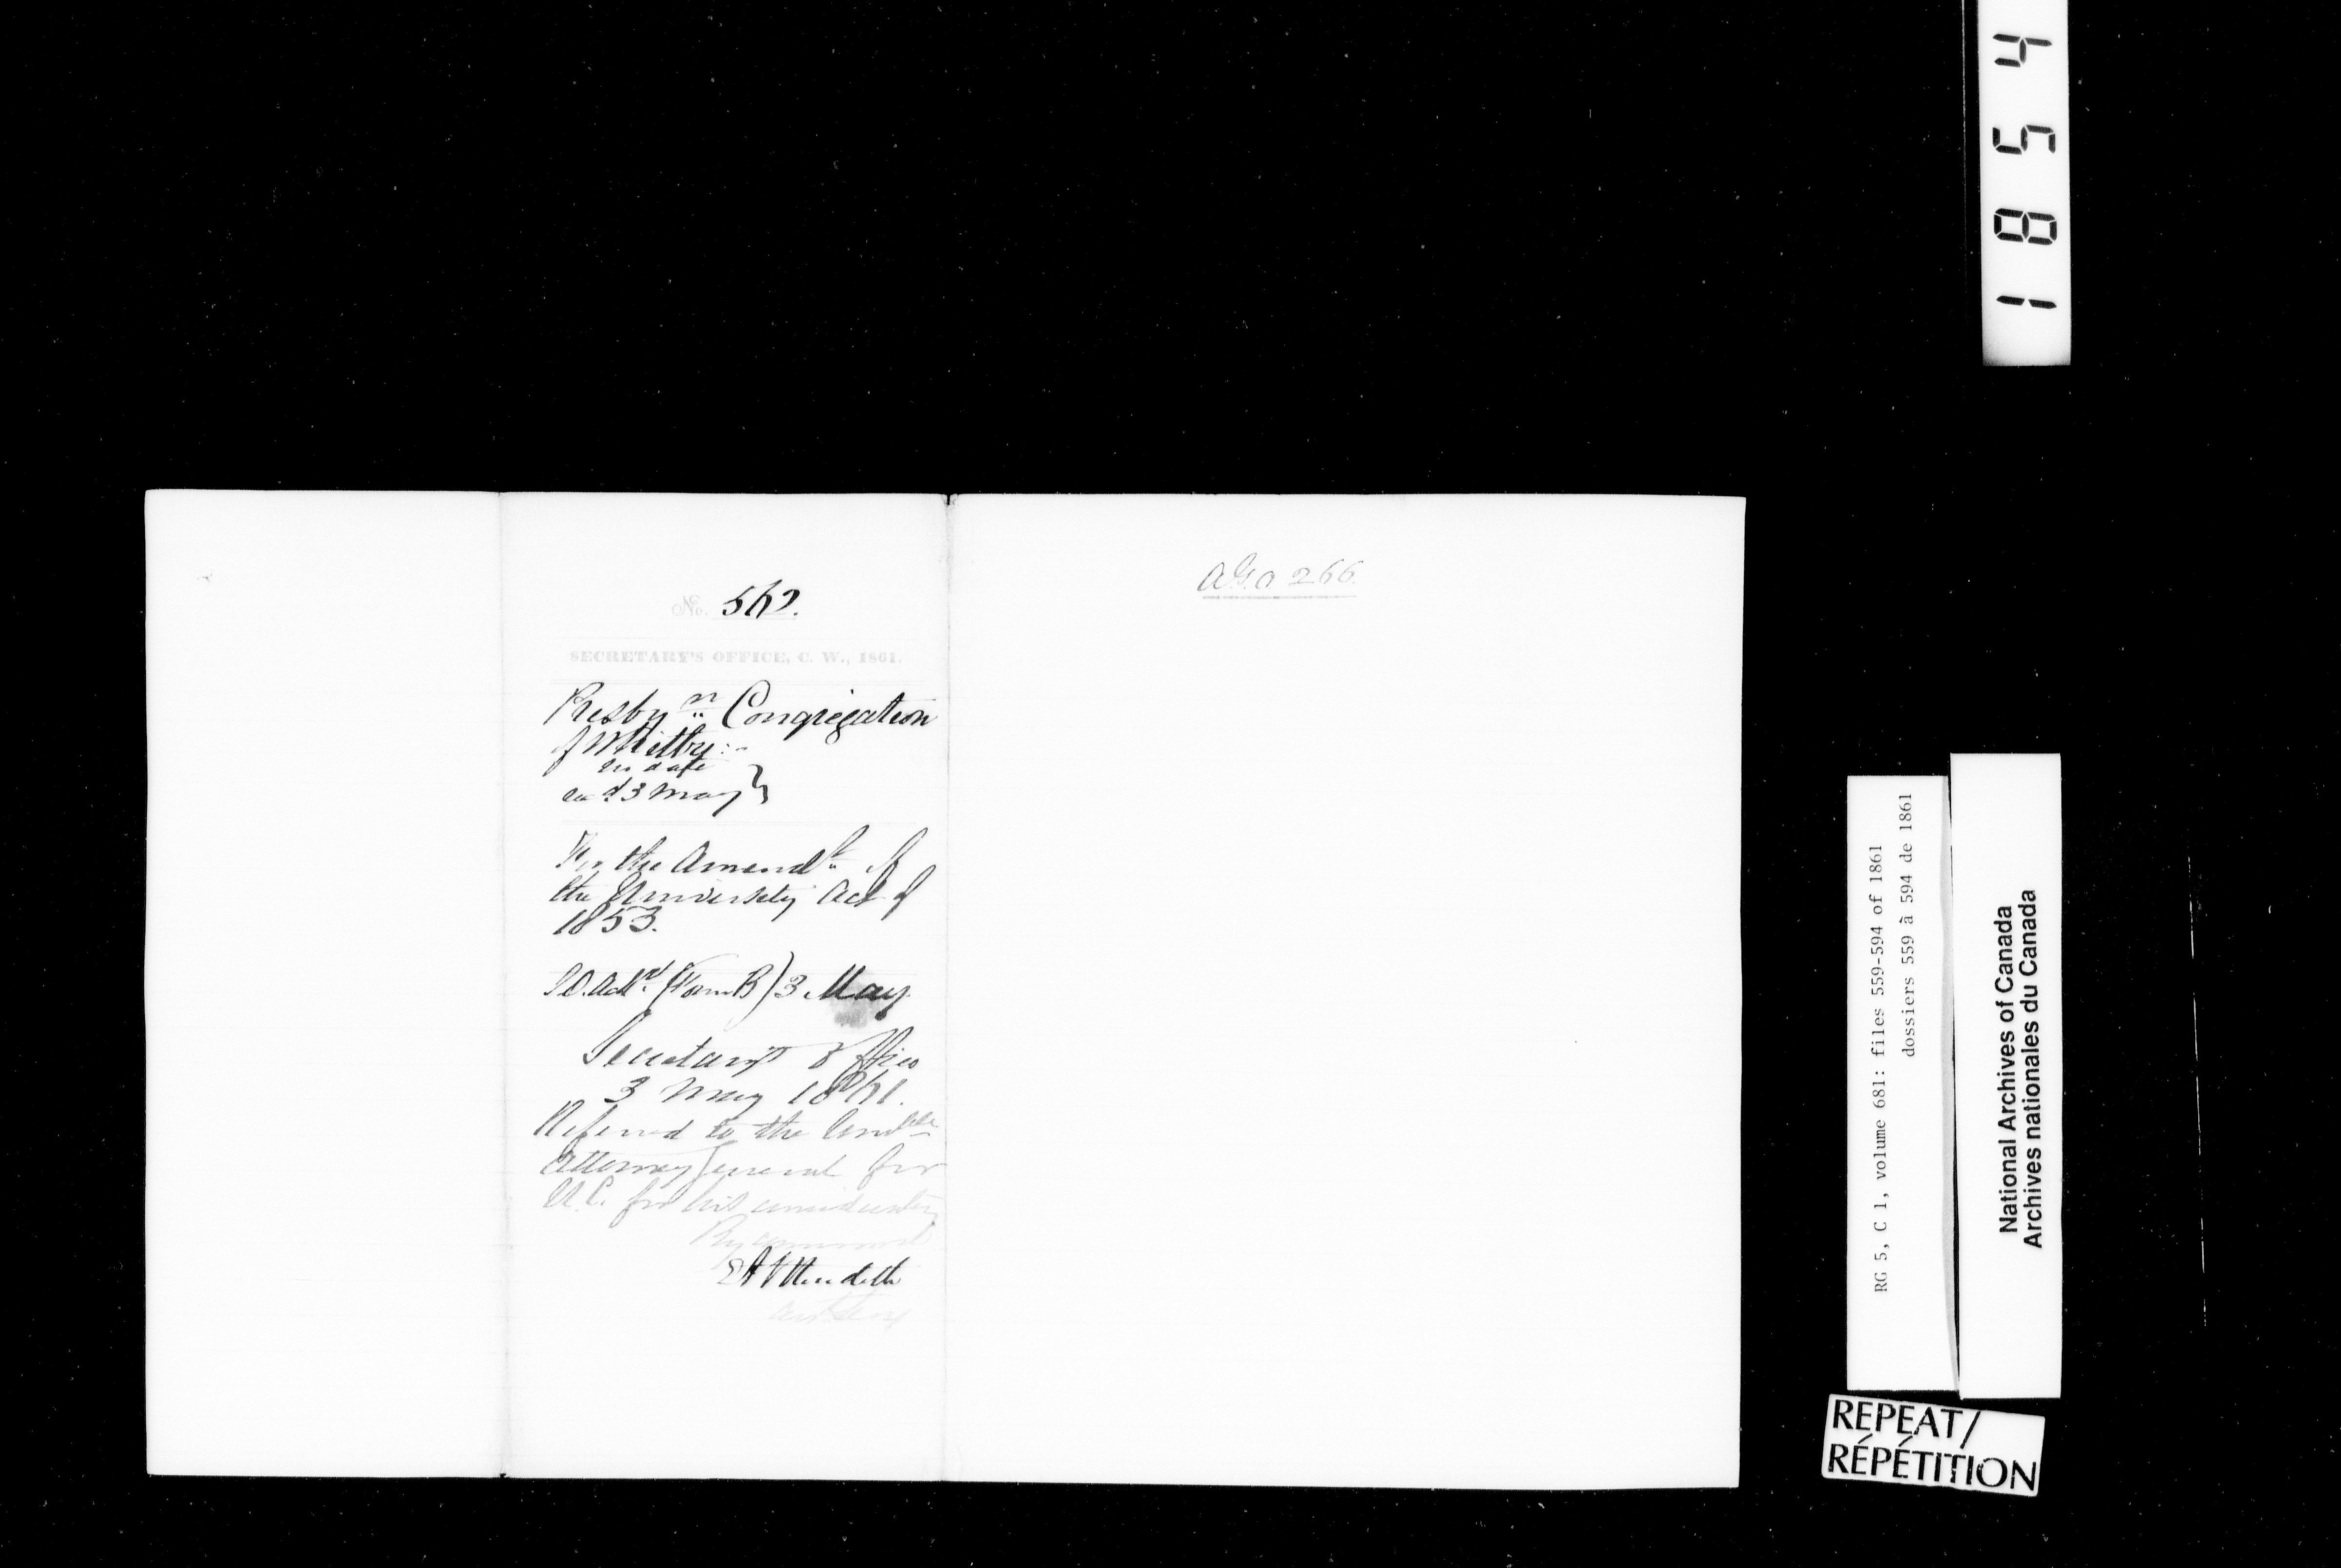 No. 562.
SECRETARY'S OFFICE, C. W., 1861.
Presbyn Congregation
of Whitby:-
no date
recd 3 May
For the Amendt of
the University Act of
1853.
Ackd (Form B) 3 May
Secretary's Office
3 May 1861.
Referred to the Honble
Attorney General for
U.C. for his consideration
By command
E A Meredith
Asst Secy
A.G.O 266.
1854
RG 5, C 1, volume 681: files 559-594 of 1861
dossiers 559 à 594 de 1861
National Archives of Canada
Archives nationales du Canada
REPEAT/
RÉPÉTITION